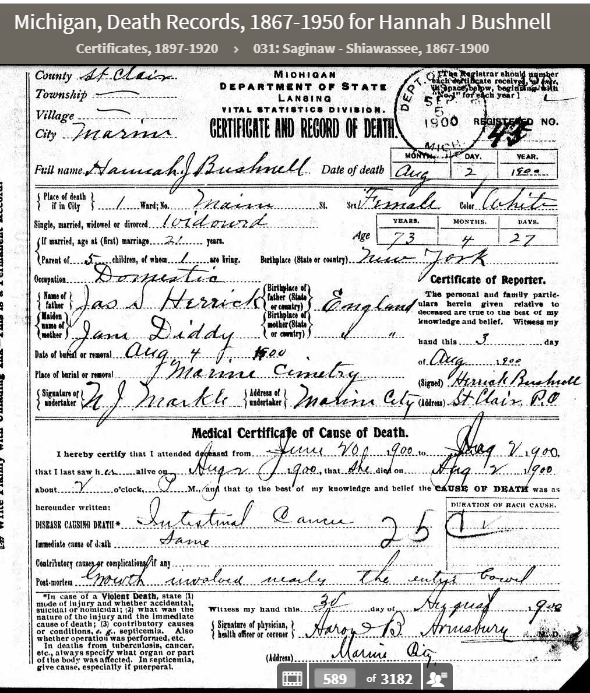 Michigan, Death Records, 1867-1950 for Hannah J Bushnell
Certificates, 1897-1920 › 031: Saginaw - Shiawassee, 1867-1900
County St. Clair
Township —
Village —
City Marine
MICHIGAN
DEPARTMENT OF STATE
LANSING
VITAL STATISTICS DIVISION.
CERTIFICATE AND RECORD OF DEATH.
[The Registrar should number each certificate received
space below, beginning with "No. 1" for each year]
DEPT. OF
SEP
5
1900
MICH.
REGISTERED NO. 45
Full name Hannah J Bushnell Date of death
MONTH. DAY. YEAR.
Aug 2 1900
Place of death if in City 1 Ward; No. Main St. Sex Female Color White
Single, married, widowed or divorced Widowd
YEARS. MONTHS. DAYS.
If married, age at (first) marriage 21 years. Age 73 4 27
Parent of 5 children, of whom 1 are living. Birthplace (State or country) New York
Occupation Domestic
Name of father Jas S Herrick Birthplace of father (State or country) England
Maiden name of mother Jane Diddy Birthplace of mother (State or country) " "
Date of burial or removal Aug 4 1900
Place of burial or removal Marine Cimetry
Signature of undertaker N J Markle Address of undertaker Marine City
Certificate of Reporter.
The personal and family particulars herein given relative to
deceased are true to the best of my
knowledge and belief. Witness my
hand this 3 day
of Aug 1900
(Signed) Herrick Bushnell
(Address) St Clair P.O
Medical Certificate of Cause of Death.
I hereby certify that I attended deceased from June 20, 1900 to Aug 2 1900
that I last saw her alive on Aug 2 1900, that she died on Aug 2 1900
about 2 o'clock, P M., and that to the best of my knowledge and belief the CAUSE OF DEATH was as
hereunder written:
DURATION OF EACH CAUSE.
DISEASE CAUSING DEATH* Intestinal Cancer
25
Immediate cause of death Same
Contributory causes or complications, if any
Post-mortem Growth involved nearly the entire bowel
*In case of a Violent Death, state (1)
mode of injury and whether accidental,
suicidal or homicidal; (2) what was the
nature of the injury and the immediate
cause of death; (3) contributory causes
or conditions, e. g., septicemia. Also
whether operation was performed, etc.
In deaths from tuberculosis, cancer,
etc., always specify what organ or part
of the body was affected. In septicemia,
give cause, especially if puerperal.
Witness my hand this 3d day of August 1900
Signature of physician, health officer or coroner B. M.D.
(Address) Marine City
589 of 3182